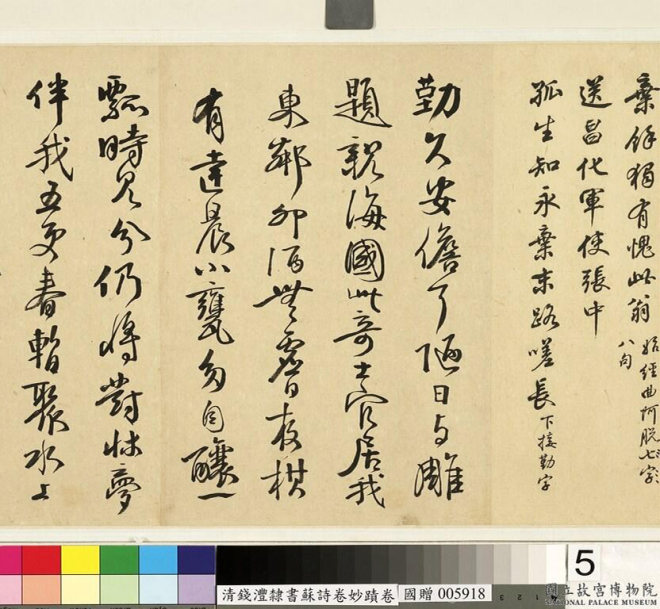 棄餘獨有愧此翁
始經曲阿脫七字
八句
送昌化軍使張中
孤生知永棄末路嗟長下接勤字
勤久安儋耳陋日与雕
題親海國此奇士官居我
東鄰卯酒無虛日夜棋
有達晨小甕多自釀一
瓢時見分仍將對牀夢
伴我五更春暫聚水上
清錢澧隸書蘇詩卷妙蹟卷
國贈 005918
5
國立故宮博物院
NATIONAL PALACE MUSEUM